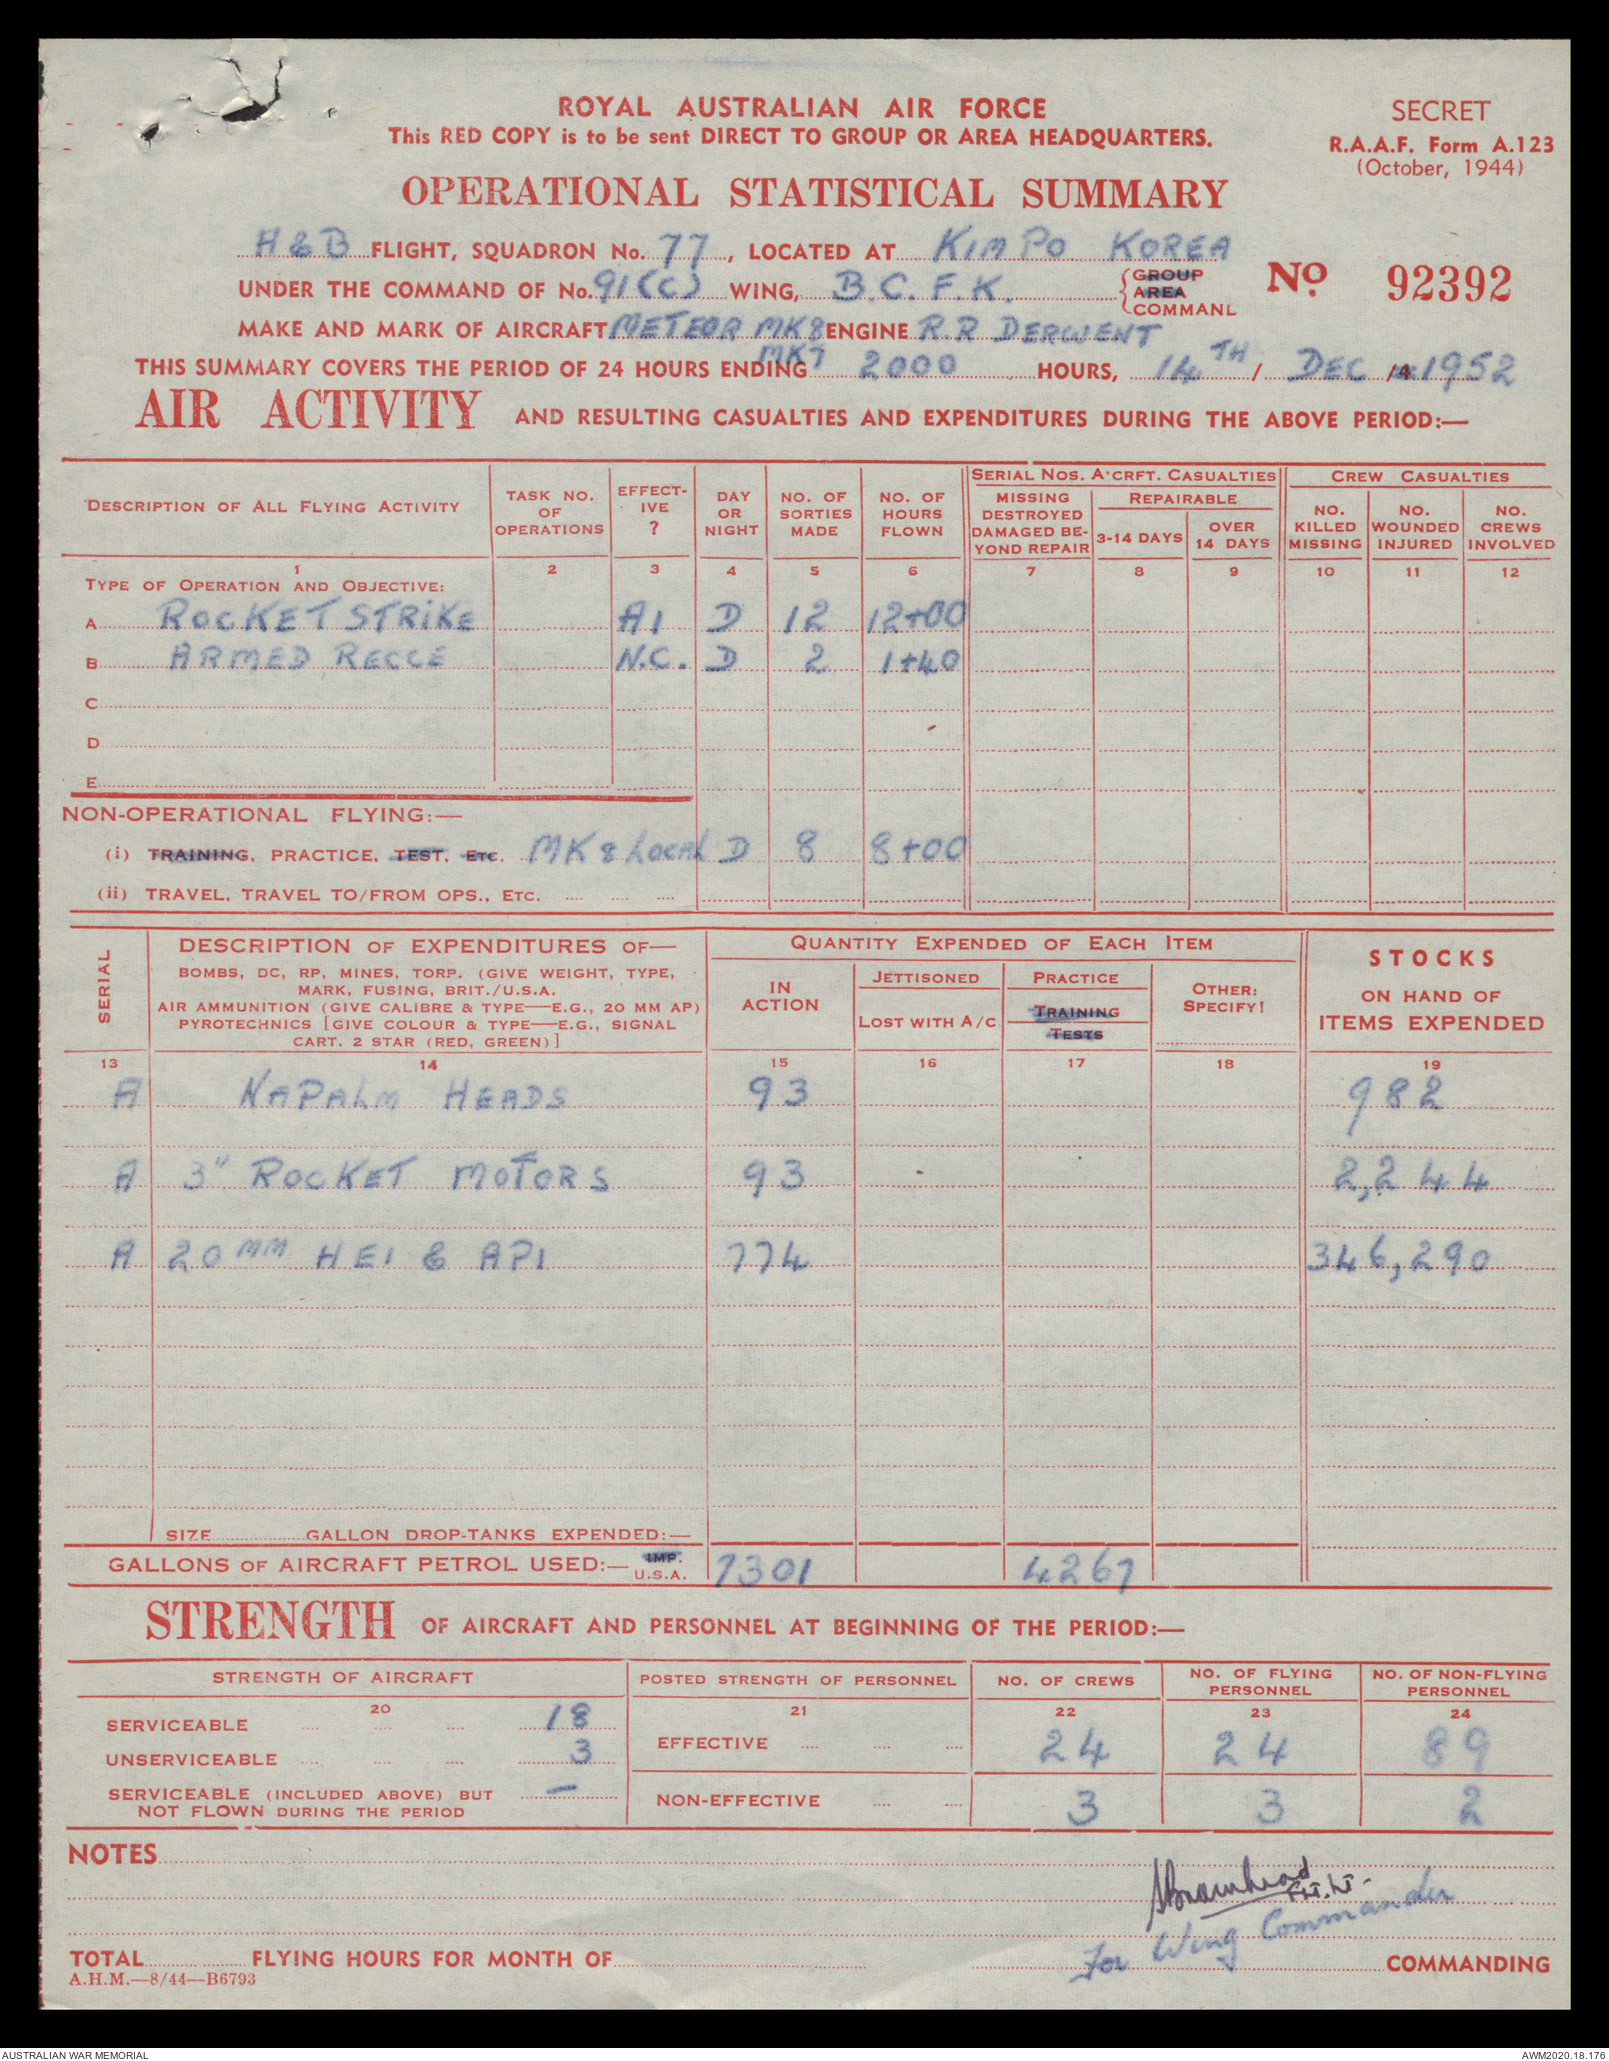 ROYAL AUSTRALIAN AIR FORCE
This RED COPY is to be sent DIRECT TO GROUP OR AREA HEADQUARTERS.
SECRET
R.A.A.F. Form A.123
(October, 1944)
OPERATIONAL STATISTICAL SUMMARY
H & B FLIGHT, SQUADRON No. 77, LOCATED AT KIMPO KOREA
UNDER THE COMMAND OF No. 91(C) WING, B.C.F.K. {GROUP AREA COMMAND
No. 92392
MAKE AND MARK OF AIRCRAFT METEOR MK8 ENGINE R.R DERWENT
MK7
THIS SUMMARY COVERS THE PERIOD OF 24 HOURS ENDING 2000 HOURS, 14TH / DEC /4 1952
AIR ACTIVITY AND RESULTING CASUALTIES AND EXPENDITURES DURING THE ABOVE PERIOD:—
DESCRIPTION OF ALL FLYING ACTIVITY
TASK NO. OF OPERATIONS
EFFECTIVE ?
DAY OR NIGHT
NO. OF SORTIES MADE
NO. OF HOURS FLOWN
SERIAL NOS. A'CRFT. CASUALTIES
MISSING DESTROYED DAMAGED BEYOND REPAIR
REPAIRABLE
3-14 DAYS
OVER 14 DAYS
CREW CASUALTIES
NO. KILLED MISSING
NO. WOUNDED INJURED
NO. CREWS INVOLVED
1 2 3 4 5 6 7 8 9 10 11 12
TYPE OF OPERATION AND OBJECTIVE:
A ROCKET STRIKE A1 D 12 12+00
B ARMED RECCE N.C. D 2 1+40
C
D
E
NON-OPERATIONAL FLYING:—
(i) TRAINING, PRACTICE, TEST, ETC. MK 8 LOCAL D 8 8+00
(ii) TRAVEL, TRAVEL TO/FROM OPS., ETC.
SERIAL
DESCRIPTION OF EXPENDITURES OF—
BOMBS, DC, RP, MINES, TORP. (GIVE WEIGHT, TYPE,
MARK, FUSING, BRIT./U.S.A.
AIR AMMUNITION (GIVE CALIBRE & TYPE—E.G., 20 MM AP)
PYROTECHNICS [GIVE COLOUR & TYPE—E.G., SIGNAL
CART. 2 STAR (RED, GREEN)]
QUANTITY EXPENDED OF EACH ITEM
IN ACTION
JETTISONED
LOST WITH A/C
PRACTICE
TRAINING
TESTS
OTHER: SPECIFY!
STOCKS
ON HAND OF
ITEMS EXPENDED
13 14 15 16 17 18 19
A NAPALM HEADS 93 982
A 3" ROCKET MOTORS 93 2,244
A 20MM HEI & API 774 346,290
SIZE GALLON DROP-TANKS EXPENDED:—
GALLONS OF AIRCRAFT PETROL USED:— IMP. U.S.A. 7301 4267
STRENGTH OF AIRCRAFT AND PERSONNEL AT BEGINNING OF THE PERIOD:—
STRENGTH OF AIRCRAFT
POSTED STRENGTH OF PERSONNEL
NO. OF CREWS
NO. OF FLYING PERSONNEL
NO. OF NON-FLYING PERSONNEL
20 21 22 23 24
SERVICEABLE 18
UNSERVICEABLE 3
SERVICEABLE (INCLUDED ABOVE) BUT NOT FLOWN DURING THE PERIOD —
EFFECTIVE 24 24 89
NON-EFFECTIVE 3 3 2
NOTES
Flt. Lt.
For Wing Commander
TOTAL FLYING HOURS FOR MONTH OF COMMANDING
A.H.M.—8/44—B6793
AUSTRALIAN WAR MEMORIAL
AWM2020.18.176